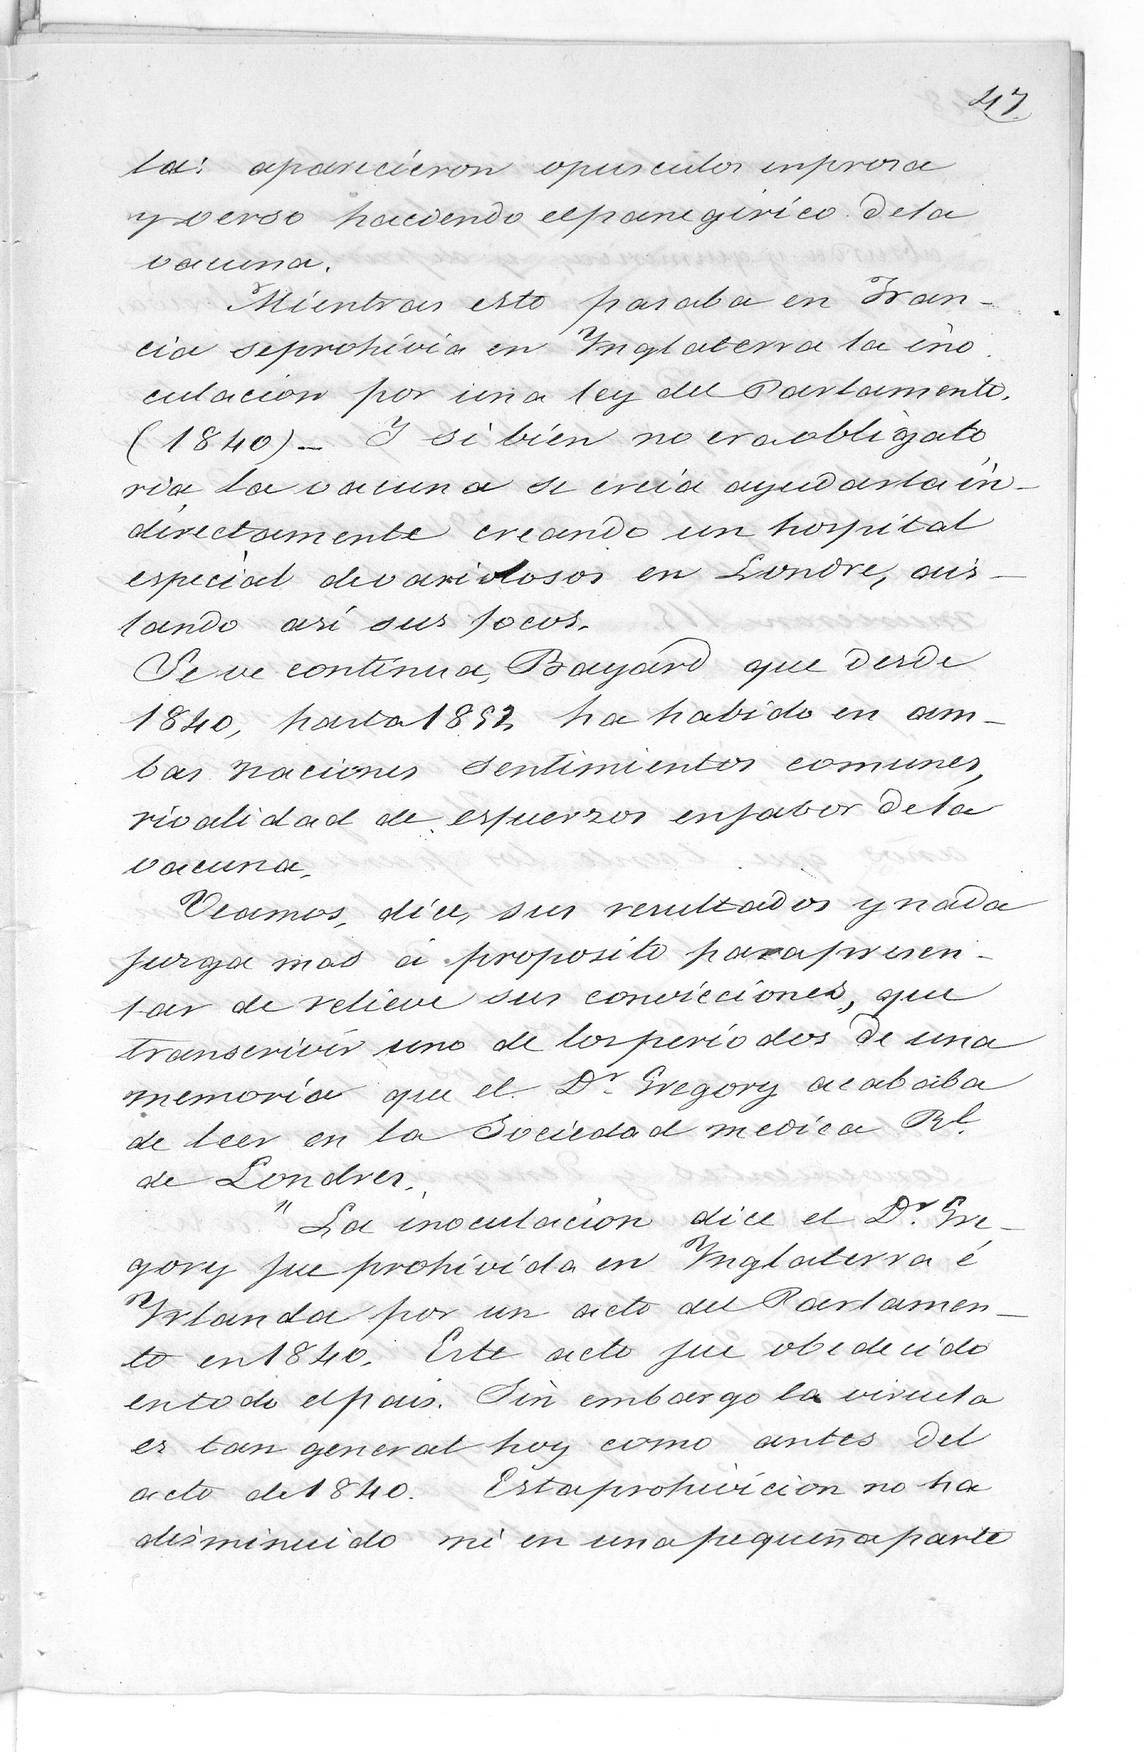 47
la: aparecieron opusculos en prosa
y verso haciendo el panegirico de la
vacuna.
Mientras esto pasaba en Fran-
cia se prohivia en Ynglaterra la ino
culacion por una ley del Parlamento.
(1840)_ Y si bien no era obligato
ria la vacuna se creia ayudarla in-
directamente creando un hospital
especial de variolosos en Londre, ais-
lando asi sus focos.
Se ve continua, Bayard que desde
1840, hasta 1852 ha habido en am-
bas naciones sentimientos comunes,
rivalidad de esfuerzos en fabor de la
vacuna.
Veamos, dice, sus resultados y nada
jurga mas á proposito para presen-
tar de relieve sus convicciones, que
transcrivir uno de los periodos de una
memoria que el Dr. Gregory acababa
de leer en la Sociedad medica Rl.
de Londres.
" La inoculacion dice el Dr. Gre-
gory fue prohivida en Ynglaterra é
Yrlanda por un acto del Parlamen-
to en 1840. Este acto fue obedecido
en todo el pais. Sin embargo la viruela
es tan general hoy como antes del
acto de 1840. Esta prohivicion no ha
disminuido ni en una pequeña parte